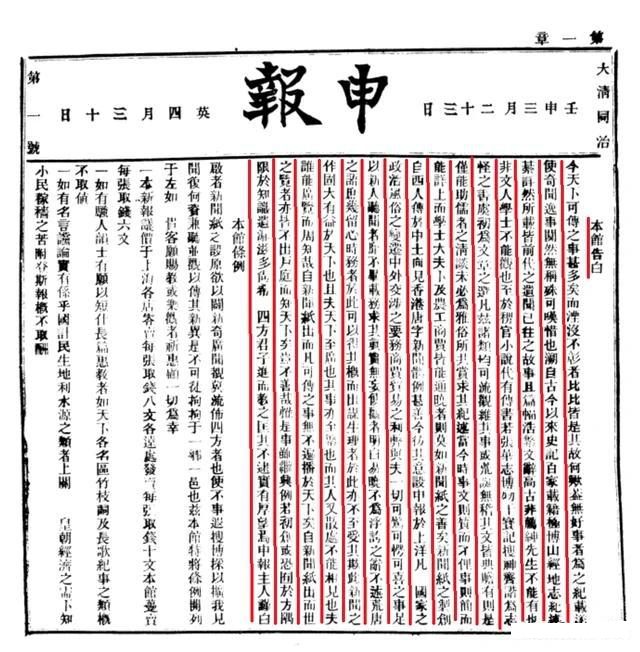 第一章
大清同治
壬申三月二十三日
申報
英四月三十日
第一號
本館告白
今天下可傳之事甚多矣而湮沒不彰者比比皆是其故何歟蓋無好事者為之紀載遂
使奇聞逸事闃然無稱殊可嘆惜也溯自古今以來史記百家載籍極博山經地志紀述
綦詳然所載皆前代之遺聞已往之故事且篇幅浩繁文辭高古非薦紳先生不能有也
非文人學士不能觀也至於稗官小說代有傳書若張華志博物干寶記搜神齊諧為志
怪之書虞初為文章之選凡茲諸類均可流觀維其事或荒誕無稽其文皆典贍有則是
僅能助儒者之清談未必為雅俗所共賞求其紀述當今時事文則質而不俚事則簡而
能詳上而學士大夫下及農工商賈皆能通曉者則莫如新聞紙之善矣新聞紙之製創
自西人傳於中土向見香港唐字新聞體例甚善今仿其意設申報於上洋凡 國家之
政治風俗之變遷中外交涉之要務商賈貿易之利弊與夫一切可驚可愕可喜之事足
以新人聽聞者靡不畢載務求其真實無妄使觀者明白易曉不為浮誇之辭不述荒唐
之語庶幾留心時務者於此可以得其概而出謀生理者於此亦不至受其欺此新聞之
作固大有益於天下也且夫天下至廣也其事亦至繁也而其人又散處不能相見也夫
誰能廣覽而周知哉自新聞紙出而凡可傳之事無不遍播於天下矣自新聞紙出而世
之覽者亦皆不出戶庭而知天下矣豈不善哉惟是事雖繼興例若初創或恐囿於方隅
限於知識遺漏滋多尚希 四方君子進而教之匡其不逮實有厚望焉申報主人謹白
本館條例
啟者新聞紙之設原欲以闢新奇廣聞覩流佈四方者也使不事遐搜博採以擴我見
聞復何資兼聽並觀以傳其新異是不可徒拘拘于一鄉一邑也茲本館特將條例開列
于左如 惜客願賜教或樂觀者祈惠顧一切為幸
一本新報議價于上海各店零賣每張取錢八文各遠處發賣每張取錢十文本館躉賣
每張取錢六文
一如有騷人韻士有願以短什長篇惠教者如天下各名區竹枝詞及長歌紀事之類概
不取值
一如有名言讜論實有係乎國計民生地利水源之類者上關 皇朝經濟之需下知
小民稼穡之苦附登斯報概不取酬